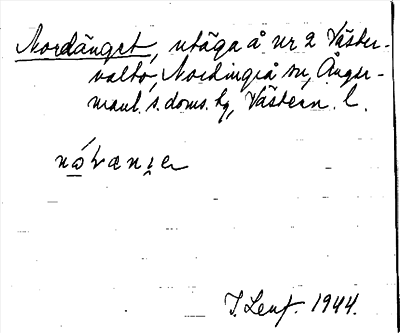 Nordänget, utäga å nr 2 Väster-
valto, Nordingrå sn, Ånger-
manl. s. doms. hg, Västern. l.
J. Lenf. 1944.